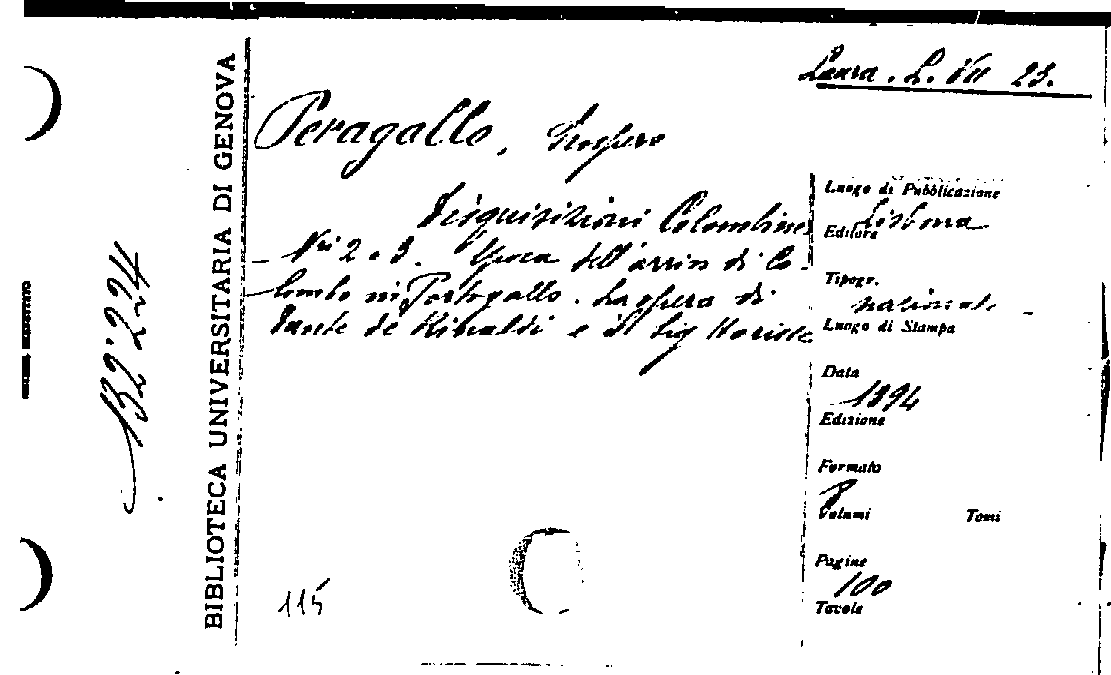 Laura. L. VII 23.
Peragallo, Prospero
Disquisizioni Colombine
Nri 2 e 3. Epoca dell'arrivo di Co-
lombo in Portogallo. La opera di
Dante de Rinaldi e il Sig Harisse
Luogo di Pubblicazione
Lisbona
Editore
Tipogr.
nazionale
Luogo di Stampa
Data
1894
Edizione
Formato
8
Volumi Tomi
Pagine
100
Tavole
115
BIBLIOTECA UNIVERSITARIA DI GENOVA
132'224